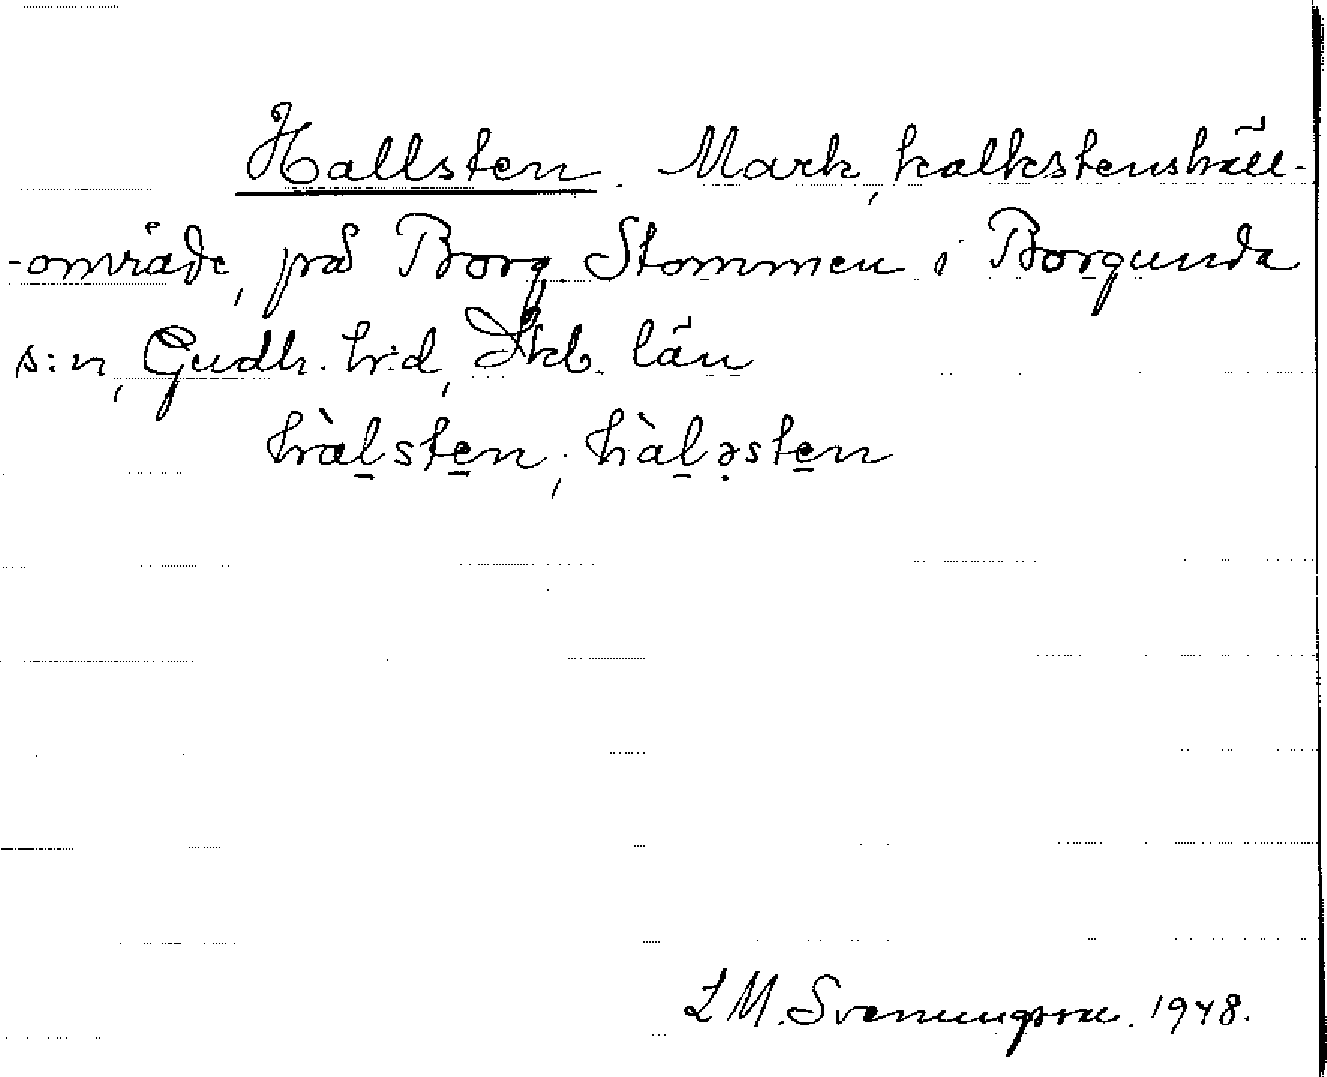 Hallsten. Mark, kalkstenshäll-
-område, på Borg Stommen i Borgunda
s:n, Gudh. h:d, Skb. län
hàl̠ste̠n, hàl̠əste̠n
L M. Svenungsson. 1948.